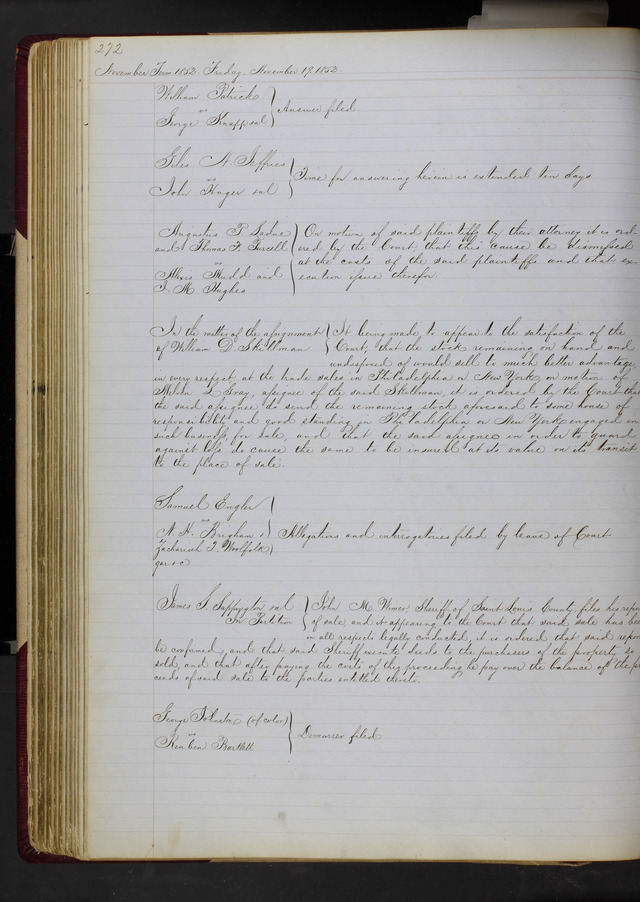 272
November Term 1852. Friday. November 19. 1852.
William Patrick
vs
George Knapp et al
Answer filed.
Giles A. Jeffries
vs
John Hager et al
Time for answering herein is extended ten days
Augustus P. Ladue
and Thomas F. Purcell
vs
Alexis Mudd and
T. M. Hughes
On motion of said plaintiffs by their attorney it is ord-
ered by the Court, that this cause be dismissed
at the costs of the said plaintiffs and that ex-
ecution issue therefor.
In the matter of the assignment
of William D. Skillman
It being made to appear to the satisfaction of the
Court, that the stock remaining on hand and
undisposed of would sell to much better advantage,
in every respect, at the trade sales in Philadelphia or New York, on motion of
L Gray, assignee of the said Skillman, it is ordered by the Court that
the said assignee do send the remaining stock aforesaid to some house of
responsibility and good standing in Philadelphia or New York engaged in
such business, for sale, and that the said assignee in order to guard
against loss do cause the same to be insured at its value on its transit
to the place of sale.
Samuel Engler
vs
N. H. Bregham &
Zachariah T. Woolfolk
gar &c
Allegations and interrogatories filed by leave of Court
James S. et al
In Partition
John M. Wimer, Sheriff of Saint Louis County, files his repo
of sale, and it appearing to the Court that said sale has bee
in all respects legally conducted, it is ordered that said repor
be confirmed, and that said Sheriff execute deeds to the purchasers of the property so
sold, and that after paying the costs of this proceeding he pay over the balance of the pro
ceeds of said sale to the parties entitled thereto.
George Johnston (of color)
vs
Reuben Bartlett
Demurrer filed